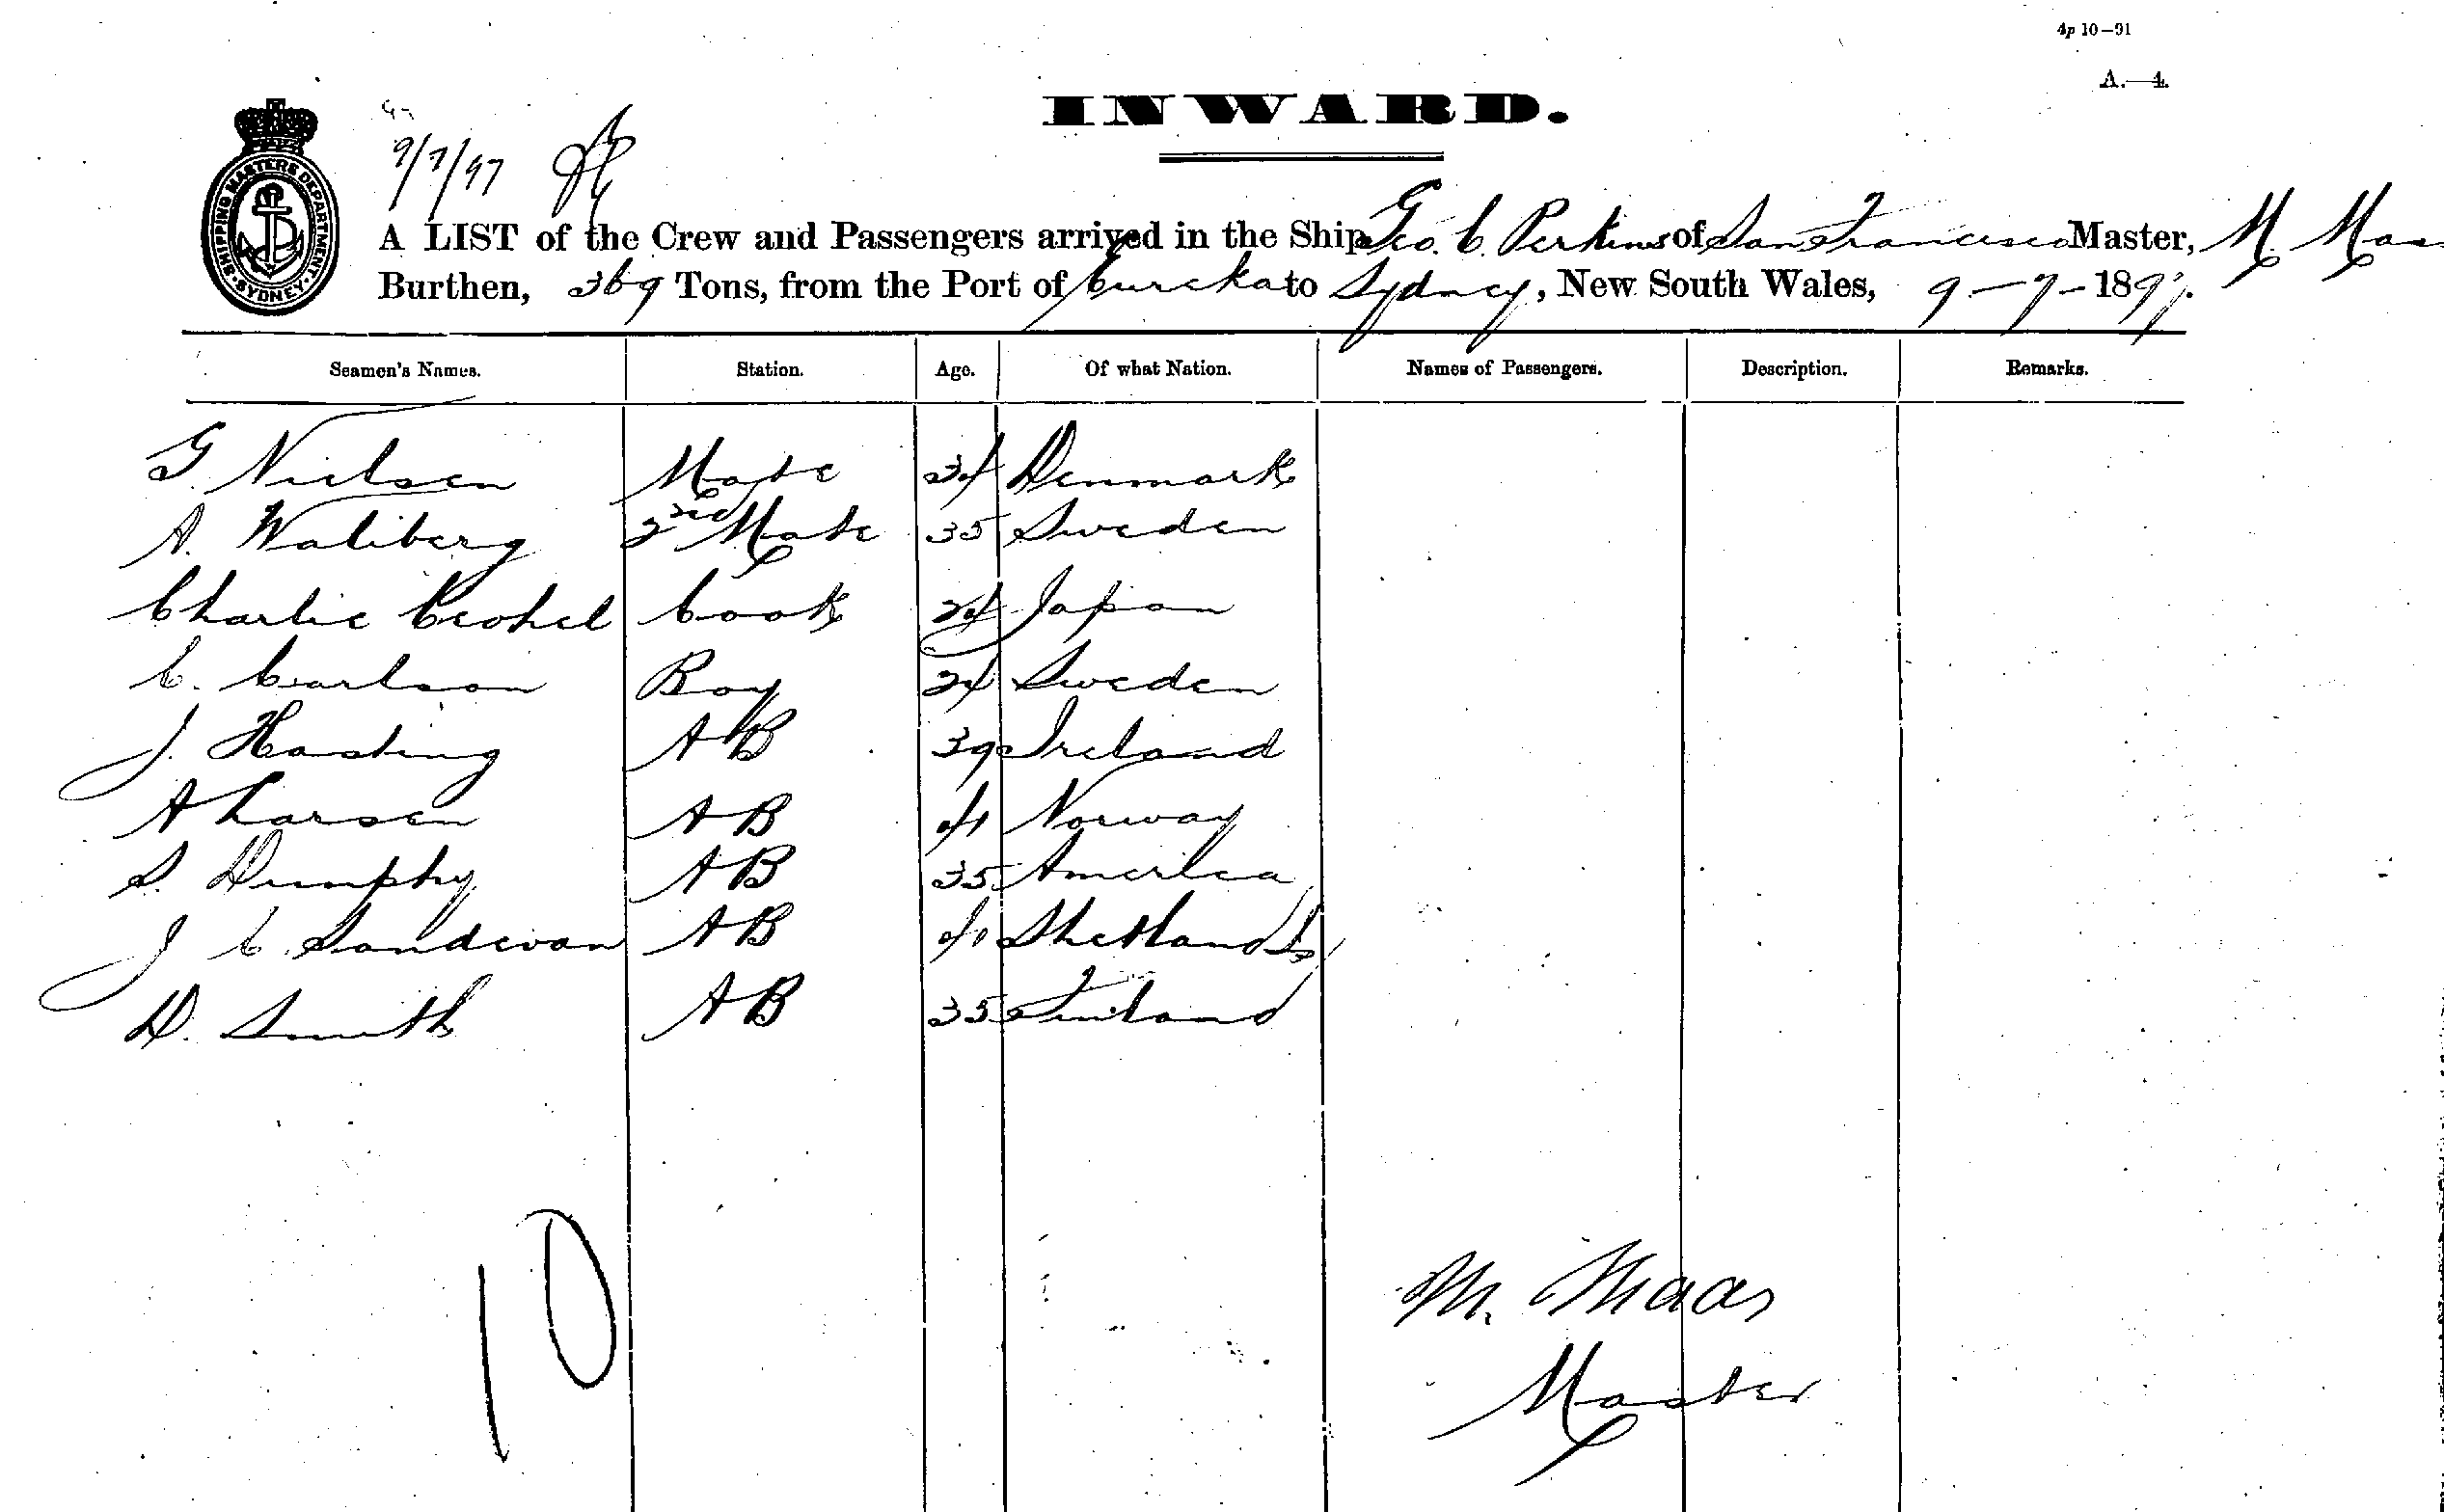 4p 10—91
A.—4.
INWARD.
SHIPPING MASTERS DEPARTMENT
SYDNEY
9/7/97
A LIST of the Crew and Passengers arrived in the Ship Geo. C. Perkins of San Francisco Master, M. Maas
Burthen, 369 Tons, from the Port of Eureka to Sydney, New South Wales, 9-7-1897.
Seamen's Names. Station. Age. Of what Nation. Names of Passengers. Description. Remarks.
G. Nielsen Mate 34 Denmark
A. Waliberg 2nd Mate 35 Sweden
Charlie Cook 24 Japan
C. Carlson Boy 24 Sweden
J. Hasting A B 39 Ireland
A Larsen A B 41 Norway
S. Dumphy A B 35 America
J C. A B 40 Shetland
D. Smith A B 35 Finland
10
M. Maas
Master